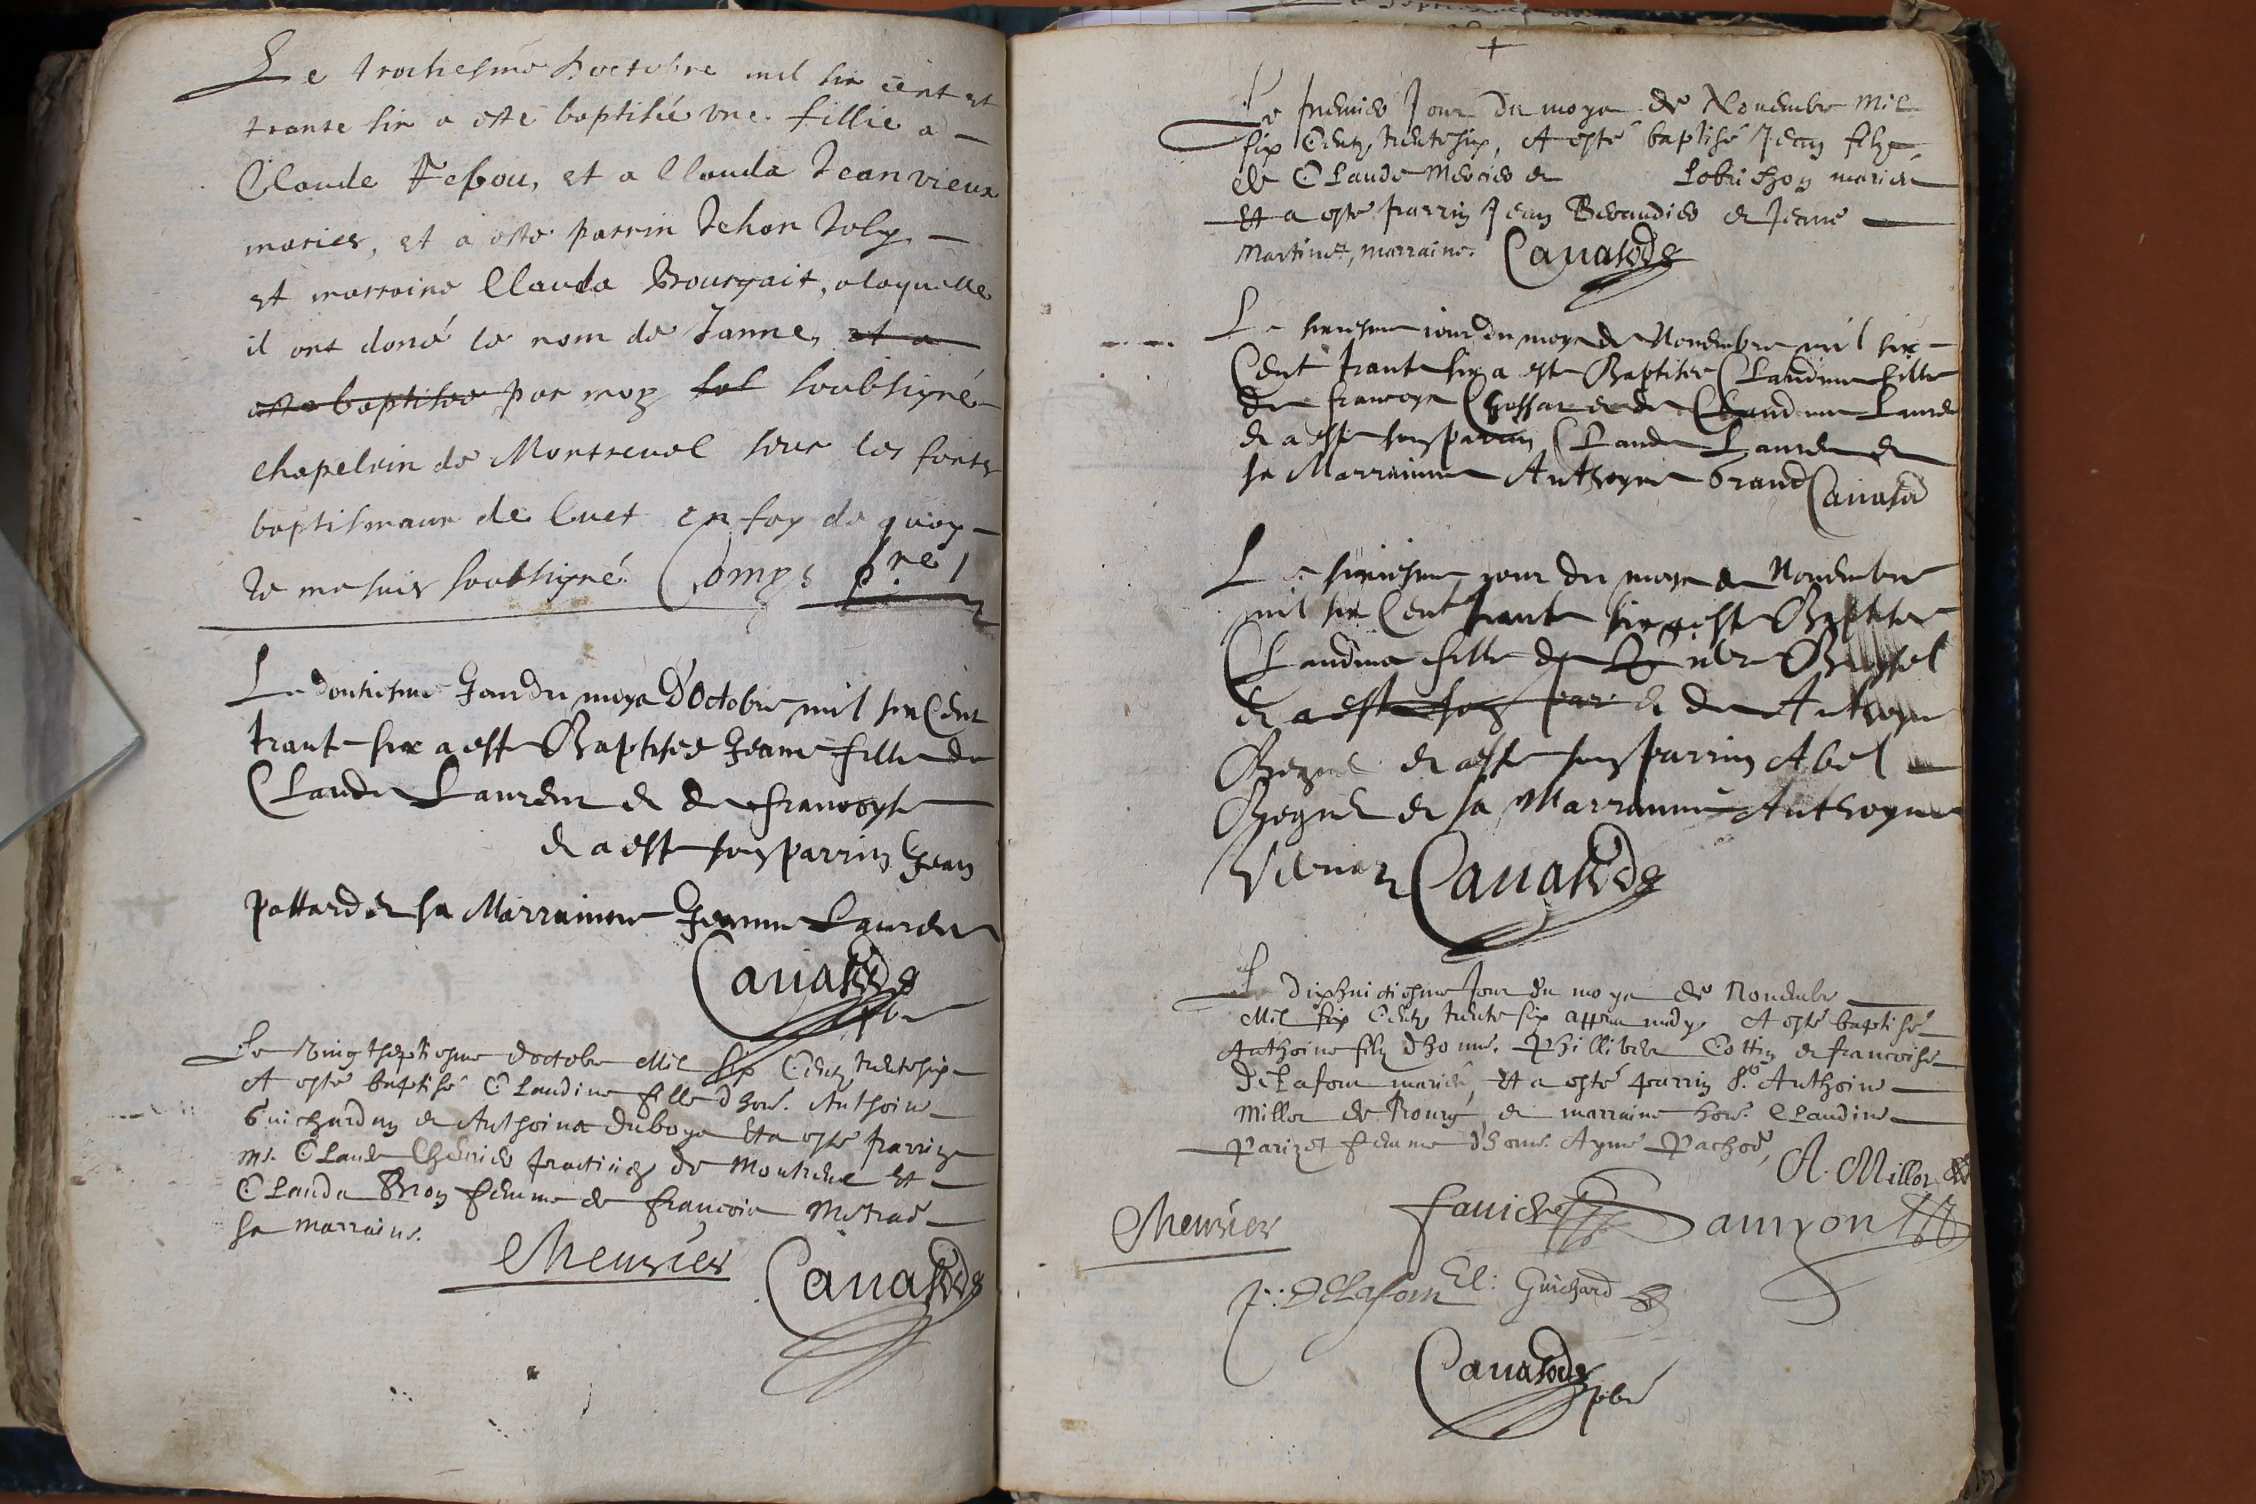 Le troisiesme d'octobre mil six cent et
trante six a esté baptisée une fillie a
Claude Febou, et a Clauda Jeanvieux
mariés, et a esté parrin Jehan Joly
et marraine Clauda Bourgait, a laquelle
il ont doné le nom de Janne, et a
esté baptisée par moy soubsigné
chapelain de Montrevel sur les fonts
baptismaux de Cuet en foy de quoy
Je me suis soubsigné. Comps pre
Le dousiesme Jour du moys d'Octobre mil six Cent
trante six a este Baptisée Jeane fille de
Claude Laurent et de françoyse
et a este son parrin Jean
pottard et sa Marrainne Jeanne Laurent
Cauasod
pbre
Le Vingtheptiesme d'octobre Mil six Centz trente six
A esté baptisé Claudine fille d'hon. Anthoine
Guichardon et Anthoina duboys Et a esté parrin
Mr. Claude Cheurier praticien de Montreuel Et
Clauda Bron femme de françois Metrad
sa marraine.
Meusnier Cauasod
Le premier Jour du moys de Nouembre Mil
six Centz trente six, A esté baptisé Jean filz
de Claude Mercier et Lobrichon mariés
Et a esté parrin Jean Beraudier et Jeane
Martinet, marraine. Cauasod
Le sixiesme iour du moys de Nouembre mil six
Cent trante six a este Baptisée Claudine fille
de francoys Chossat et de Claudine Laurent
et a este son parrin Claude Laurent et
sa Marrainne Anthoyne Grand Cauasod
Le sixiesme jour du moys de Nouembre
mil six Cent trante six a este Baptisée
Claudine fille de
et a este son par et de Anthoyne
et a este son parrin Abel
et sa Marrainne Anthoyne
Cauasod
Le dixhuictiesme Jour du moys de Nouembre
Mil six Centz trente six apres midy A esté baptisé
Anthoine filz d'hon. Phillibert Cottin et francoise
Delafont mariés, Et a esté parrin Sr. Anthoine
Millot de Bourg et marraine hon. Claudine
Parizet femme d'hon. Aymé Pachod,
A. Millot
Meusnier fauichet Samyon
Delafont Cl: Guichard
Cauasod pbre